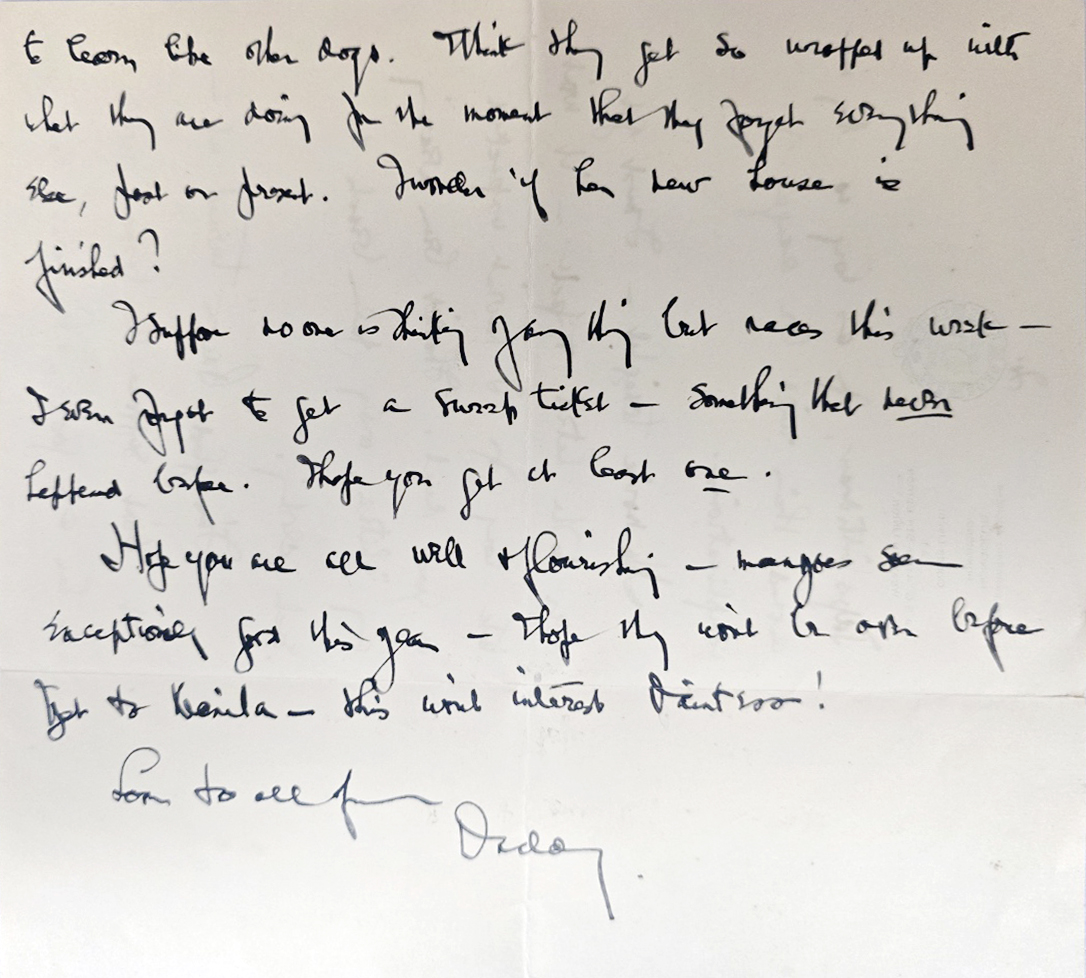 to learn like other dogs. Think they get so wrapped up with
what they are doing for the moment that they forget everything
else, past or present. I wonder if her new house is
finished?
I suppose no one is thinking of anything but races this week —
I even forgot to get a sweep ticket — something that never
happened before. I hope you get at least one.
Hope you are all well & flourishing — mangoes seem
exceptionally good this year — I hope they won't be over before
I get to Manila — this won't interest
Love to all from